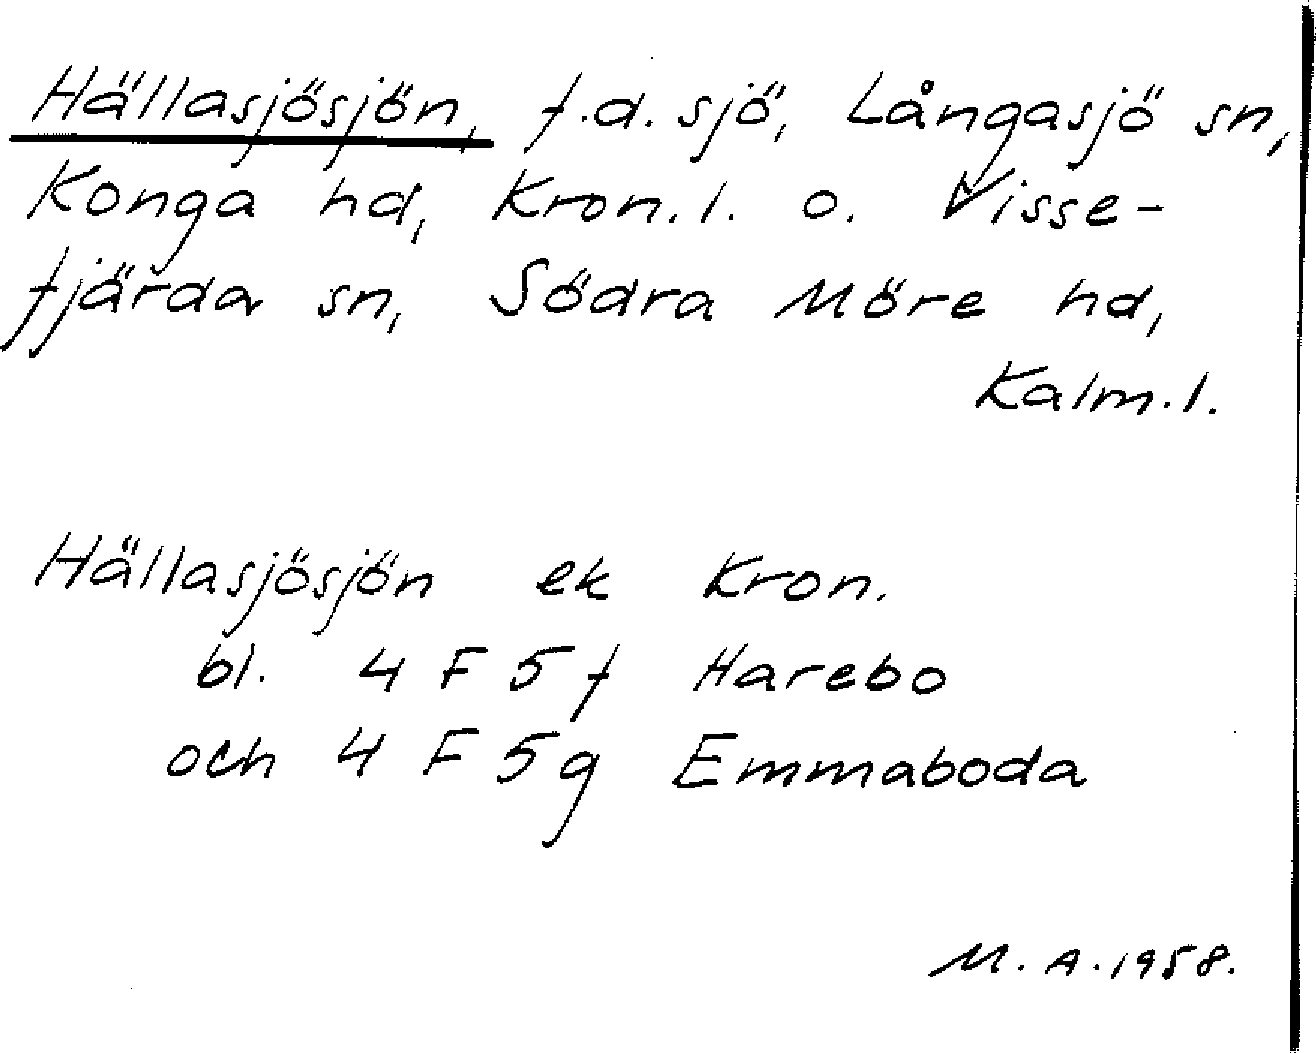 Hällasjösjön, f.d. sjö, Långasjö sn,
Konga hd, Kron.l. o. Visse-
fjärda sn, Södra Möre hd,
Kalm.l.
Hällasjösjön ek Kron.
bl. 4 F 5 f Harebo
och 4 F 5 g Emmaboda
M. A. 1958.